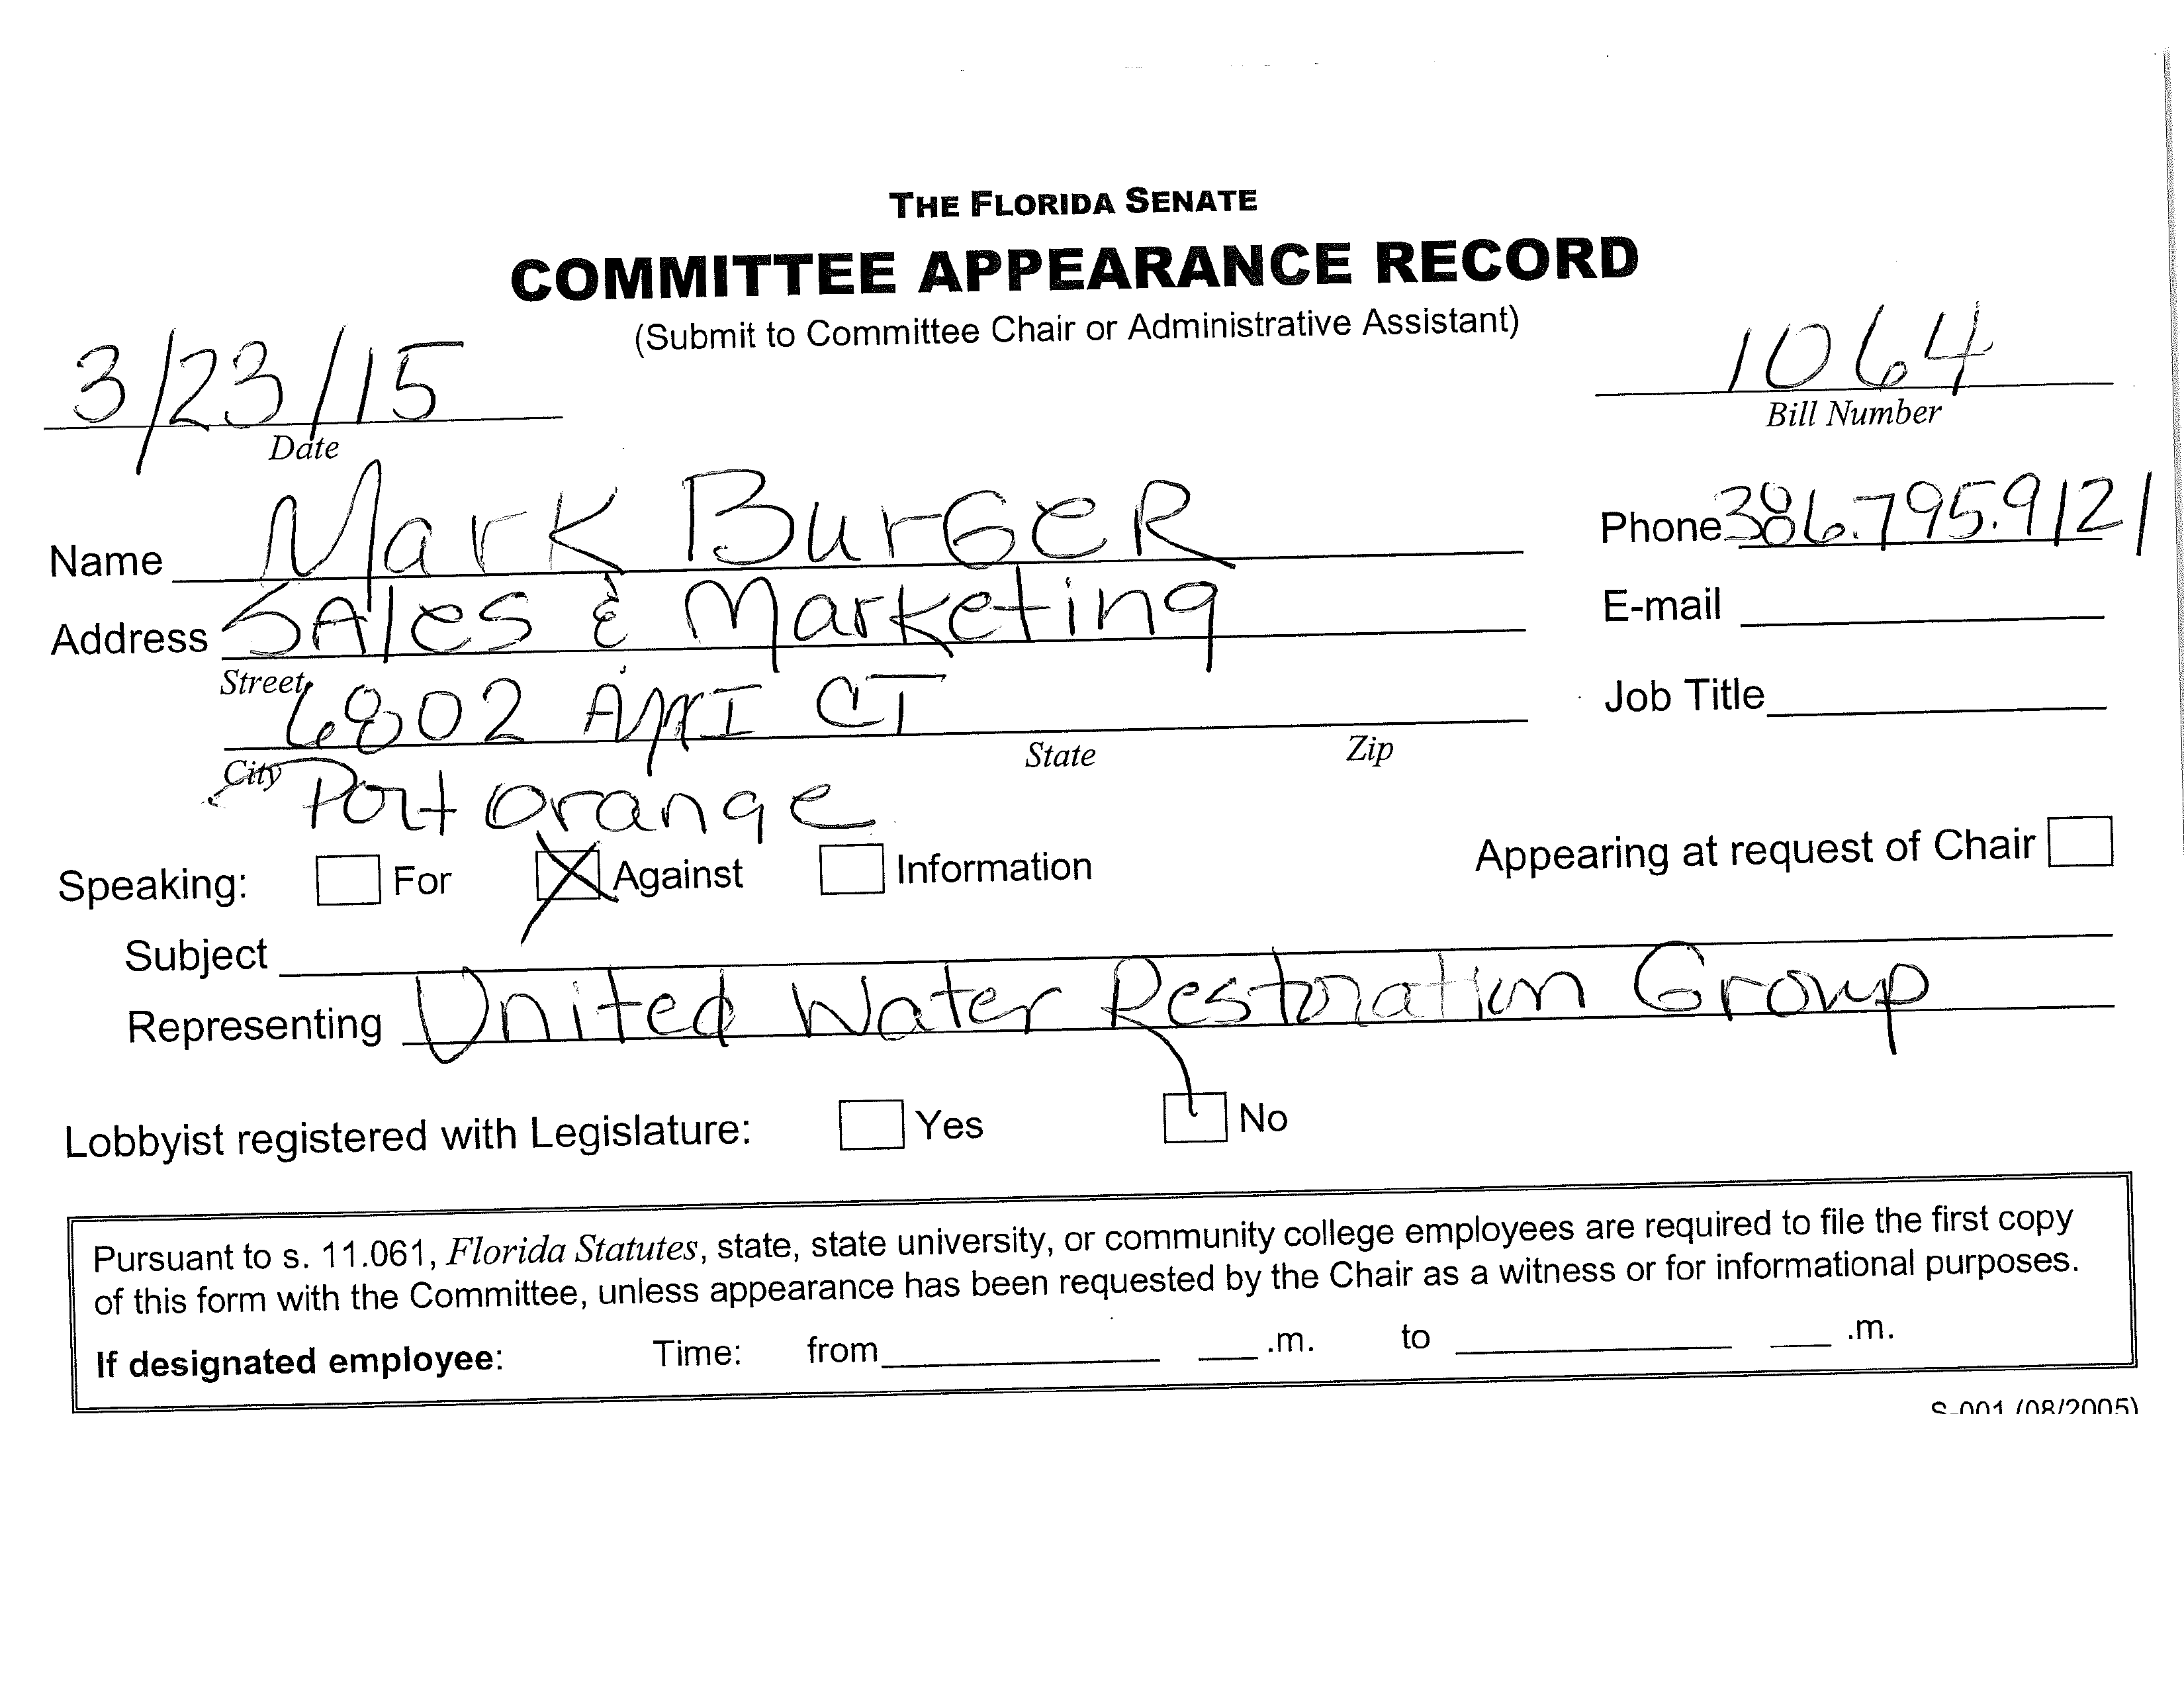 THE FLORIDA SENATE
COMMITTEE APPEARANCE RECORD
(Submit to Committee Chair or Administrative Assistant)
3/23/15
Date
1064
Bill Number
Name Mark BurGeR
Phone 386.795.9121
Address SAles & Marketing
E-mail
Street
6802 CT
Job Title
City State Zip
Port Orange
Speaking: For Against Information Appearing at request of Chair
Subject
Representing United Water Restoration Group
Lobbyist registered with Legislature: Yes No
Pursuant to s. 11.061, Florida Statutes, state, state university, or community college employees are required to file the first copy
of this form with the Committee, unless appearance has been requested by the Chair as a witness or for informational purposes.
If designated employee: Time: from .m. to .m.
S-001 (08/2005)